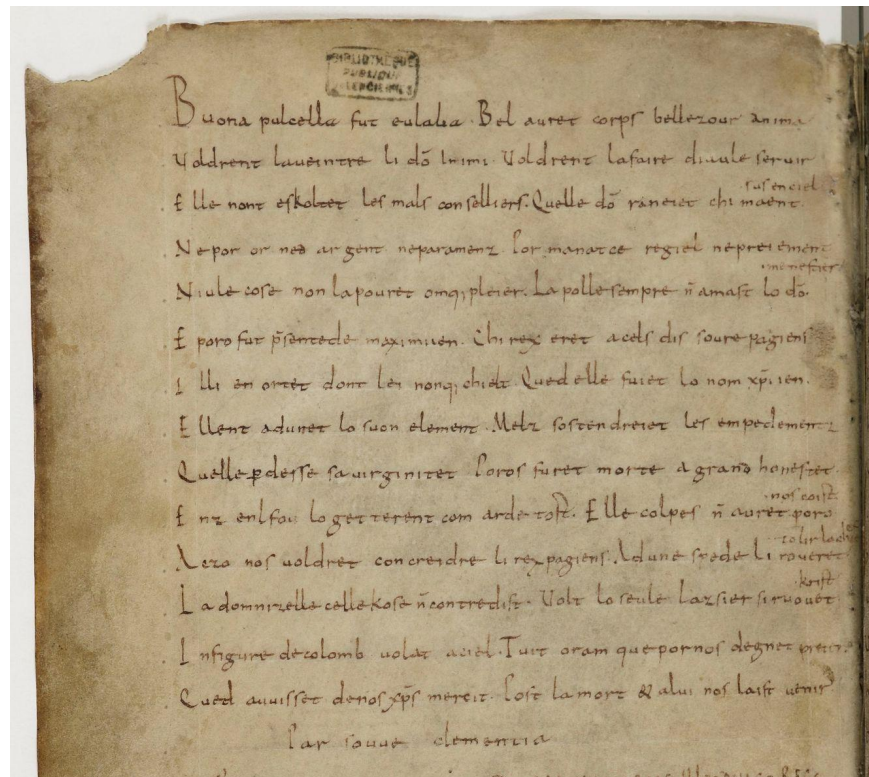 BIBLIOTHEQUE
PUBLIQUE
VALENCIENNES
Buona pulcella fut eulalia. Bel auret corps bellezour anima
Voldrent laueintre li dō inimi. Voldrent lafaire diaule seruir
sus en ciel
Elle nont eskoltet les mals conselliers. Quelle dō raneiet chi maent
Ne por or ned argent neparamenz. Por manatce regiel nepreiement
menestier
Niule cose non lapouret omqi pleier. La polle sempre ñ amast lo dō
E poro fut p̄sentede maximiien. Chi rex eret a cels dis soure pagiens
I lli en ortet dont lei nonqi chielt. Qued elle fuiet lo nom xp̄iien.
Ellent adunet lo suon element. Melz sostendreiet les empedementz
Quelle ꝑdesse sa uirginitet. Poros furet morte a grand honestet
nos coist
Enz enl fou lo getterent com arde tost. Elle colpes ñ auret poro
tolir lo chief
Aezo nos uoldret concreidre li rex pagiens. Ad une spede li roueret
krist
La domnizelle celle kose ñ contredist. Volt lo seule lazsier si ruouet
In figure de colomb uolat a ciel. Tuit oram que por nos degnet preier.
Qued auuisset de nos xp̄s mercit. Post la mort & a lui nos laist uenir
Par souue clementia